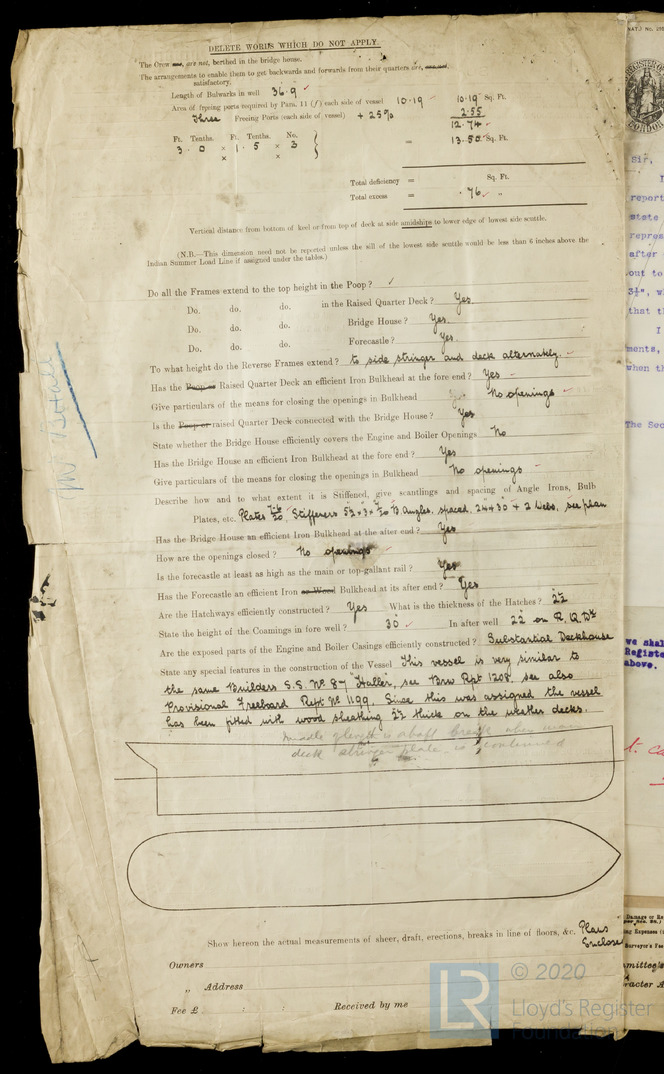 DELETE WORDS WHICH DO NOT APPLY.
The Crew are, are not, berthed in the bridge house.
The arrangements to enable them to get backwards and forwards from their quarters are,
satisfactory.
Length of Bulwarks in well 36.9 ✓
Area of freeing ports required by Para. 11 (f) each side of vessel 10.19 10.19 Sq. Ft.
Three Freeing Ports (each side of vessel) + 25% 2.55
12.74
Ft. Tenths. Ft. Tenths. No.
3 . 0 × 1 . 5 × 3 = 13.50 Sq. Ft.
× ×
Total deficiency = Sq. Ft.
Total excess = .76 "
Vertical distance from bottom of keel or from top of deck at side amidships to lower edge of lowest side scuttle.
(N.B.—This dimension need not be reported unless the sill of the lowest side scuttle would be less than 6 inches above the
Indian Summer Load Line if assigned under the tables.)
Do all the Frames extend to the top height in the Poop? ✓
Do. do. do. in the Raised Quarter Deck? Yes.
Do. do. do. Bridge House? Yes.
Do. do. do. Forecastle? Yes.
To what height do the Reverse Frames extend? to side stringer and deck alternately.
Has the Poop or Raised Quarter Deck an efficient Iron Bulkhead at the fore end? Yes
Give particulars of the means for closing the openings in Bulkhead No openings
Is the Poop or raised Quarter Deck connected with the Bridge House? Yes
State whether the Bridge House efficiently covers the Engine and Boiler Openings No
Has the Bridge House an efficient Iron Bulkhead at the fore end? Yes
Give particulars of the means for closing the openings in Bulkhead No openings
Describe how and to what extent it is Stiffened, give scantlings and spacing of Angle Irons, Bulb
Plates, etc. Plates Stiffeners B. Angles, spaced 24 & 30 & 2 Webs, see plan
Has the Bridge House an efficient Iron Bulkhead at the after end? Yes
How are the openings closed? No openings
Is the forecastle at least as high as the main or top-gallant rail? Yes
Has the Forecastle an efficient Iron or Wood Bulkhead at its after end? Yes
Are the Hatchways efficiently constructed? Yes What is the thickness of the Hatches? 2½
State the height of the Coamings in fore well? 30 ✓ In after well 22 on R. Q. Dk
Are the exposed parts of the Engine and Boiler Casings efficiently constructed? Substantial Deckhouse
State any special features in the construction of the Vessel This vessel is very similar to
the same Builders S.S. No 87 "Haller", see Brw Rpt 1208. see also
Provisional Freeboard Rept No 1199. Since this was assigned the vessel
has been fitted with wood sheathing 2½ thick on the weather decks.
Middle of length is abaft break when
deck stringer plate is continued
Show hereon the actual measurements of sheer, draft, erections, breaks in line of floors, &c. Plans
Enclose
Owners
" Address
Fee £ : : Received by me
© 2020
LR Lloyd's Register
Foundation
Sir,
report
state
repres
after
out to
3½", w
that th
I
ments,
when th
The Sec
we shal
Registe
above.